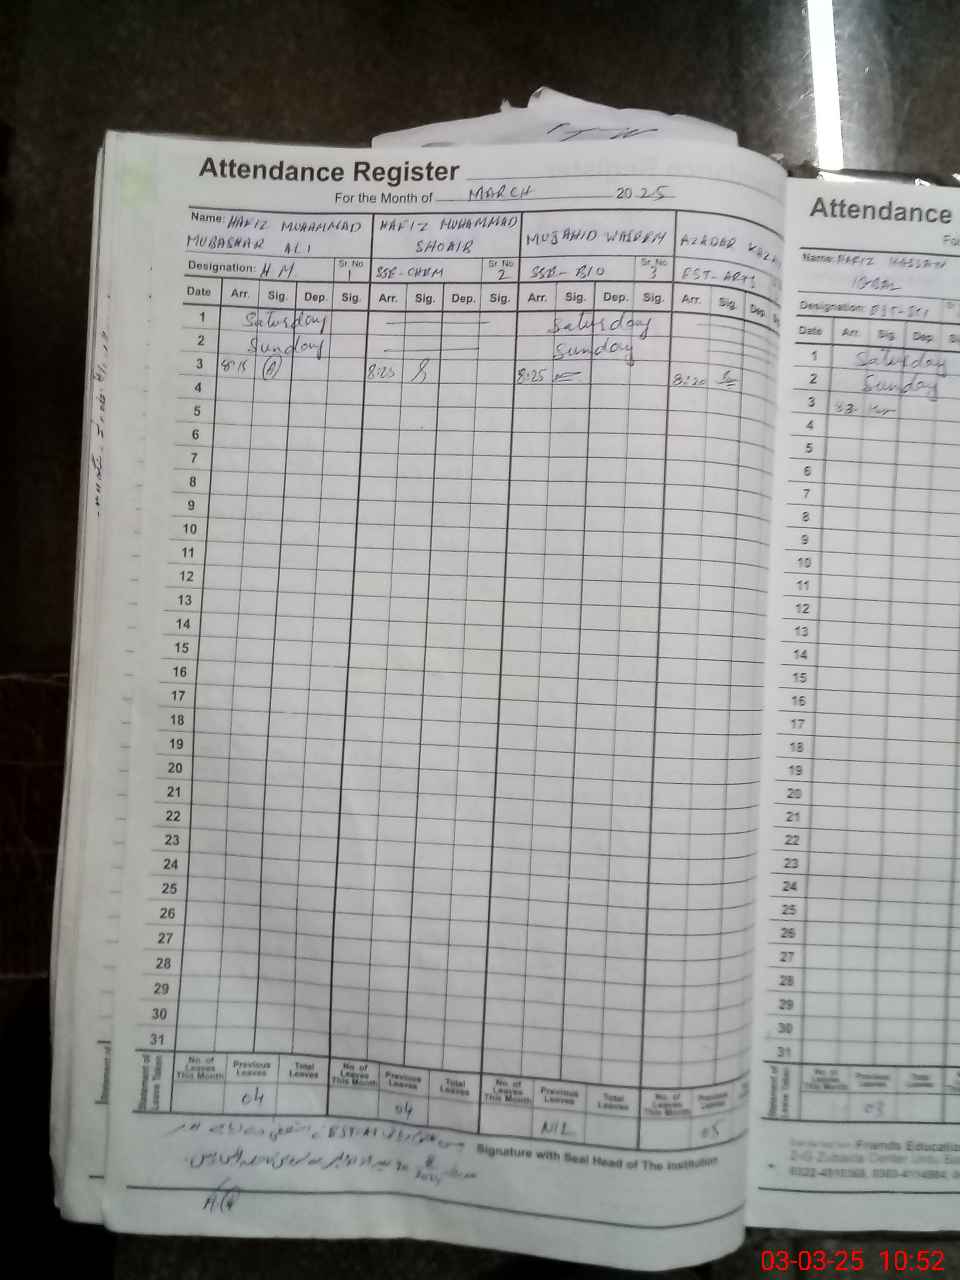 Attendance Register
For the Month of MARCH 2025
Name: HAFIZ MUHAMMAD MUBASHAR ALI
Designation: H M. Sr. No
HAFIZ MUHAMMAD SHOAIB
SSE-CHEM Sr. No 2
MUJAHID WASEEM
SSE-BIO Sr. No 3
AZADAR
EST-ARTS
Date Arr. Sig. Dep. Sig. Arr. Sig. Dep. Sig. Arr. Sig. Dep. Sig. Arr. Sig. Dep.
1 Saturday Saturday
2 Sunday Sunday
3 8:15 8:25 8:25 8:20
4
5
6
7
8
9
10
11
12
13
14
15
16
17
18
19
20
21
22
23
24
25
26
27
28
29
30
31
Statement of Leave Taken
No. of Leaves This Month Previous Leaves Total Leaves No. of Leaves This Month Previous Leaves Total Leaves No. of Leaves This Month Previous Leaves Total Leaves No. of Leaves This Month Previous Leaves
04 04 NIL 05
Signature with Seal Head of The Institution
Attendance
Name: HAFIZ HASSAN
Designation: EST-SCI
Date Arr. Sig. Dep.
1 Saturday
2 Sunday
3
4
5
6
7
8
9
10
11
12
13
14
15
16
17
18
19
20
21
22
23
24
25
26
27
28
29
30
31
No. of Leaves This Month Previous Leaves Total
03
Friends Educatio
2-G Zubaida Center
03-03-25 10:52